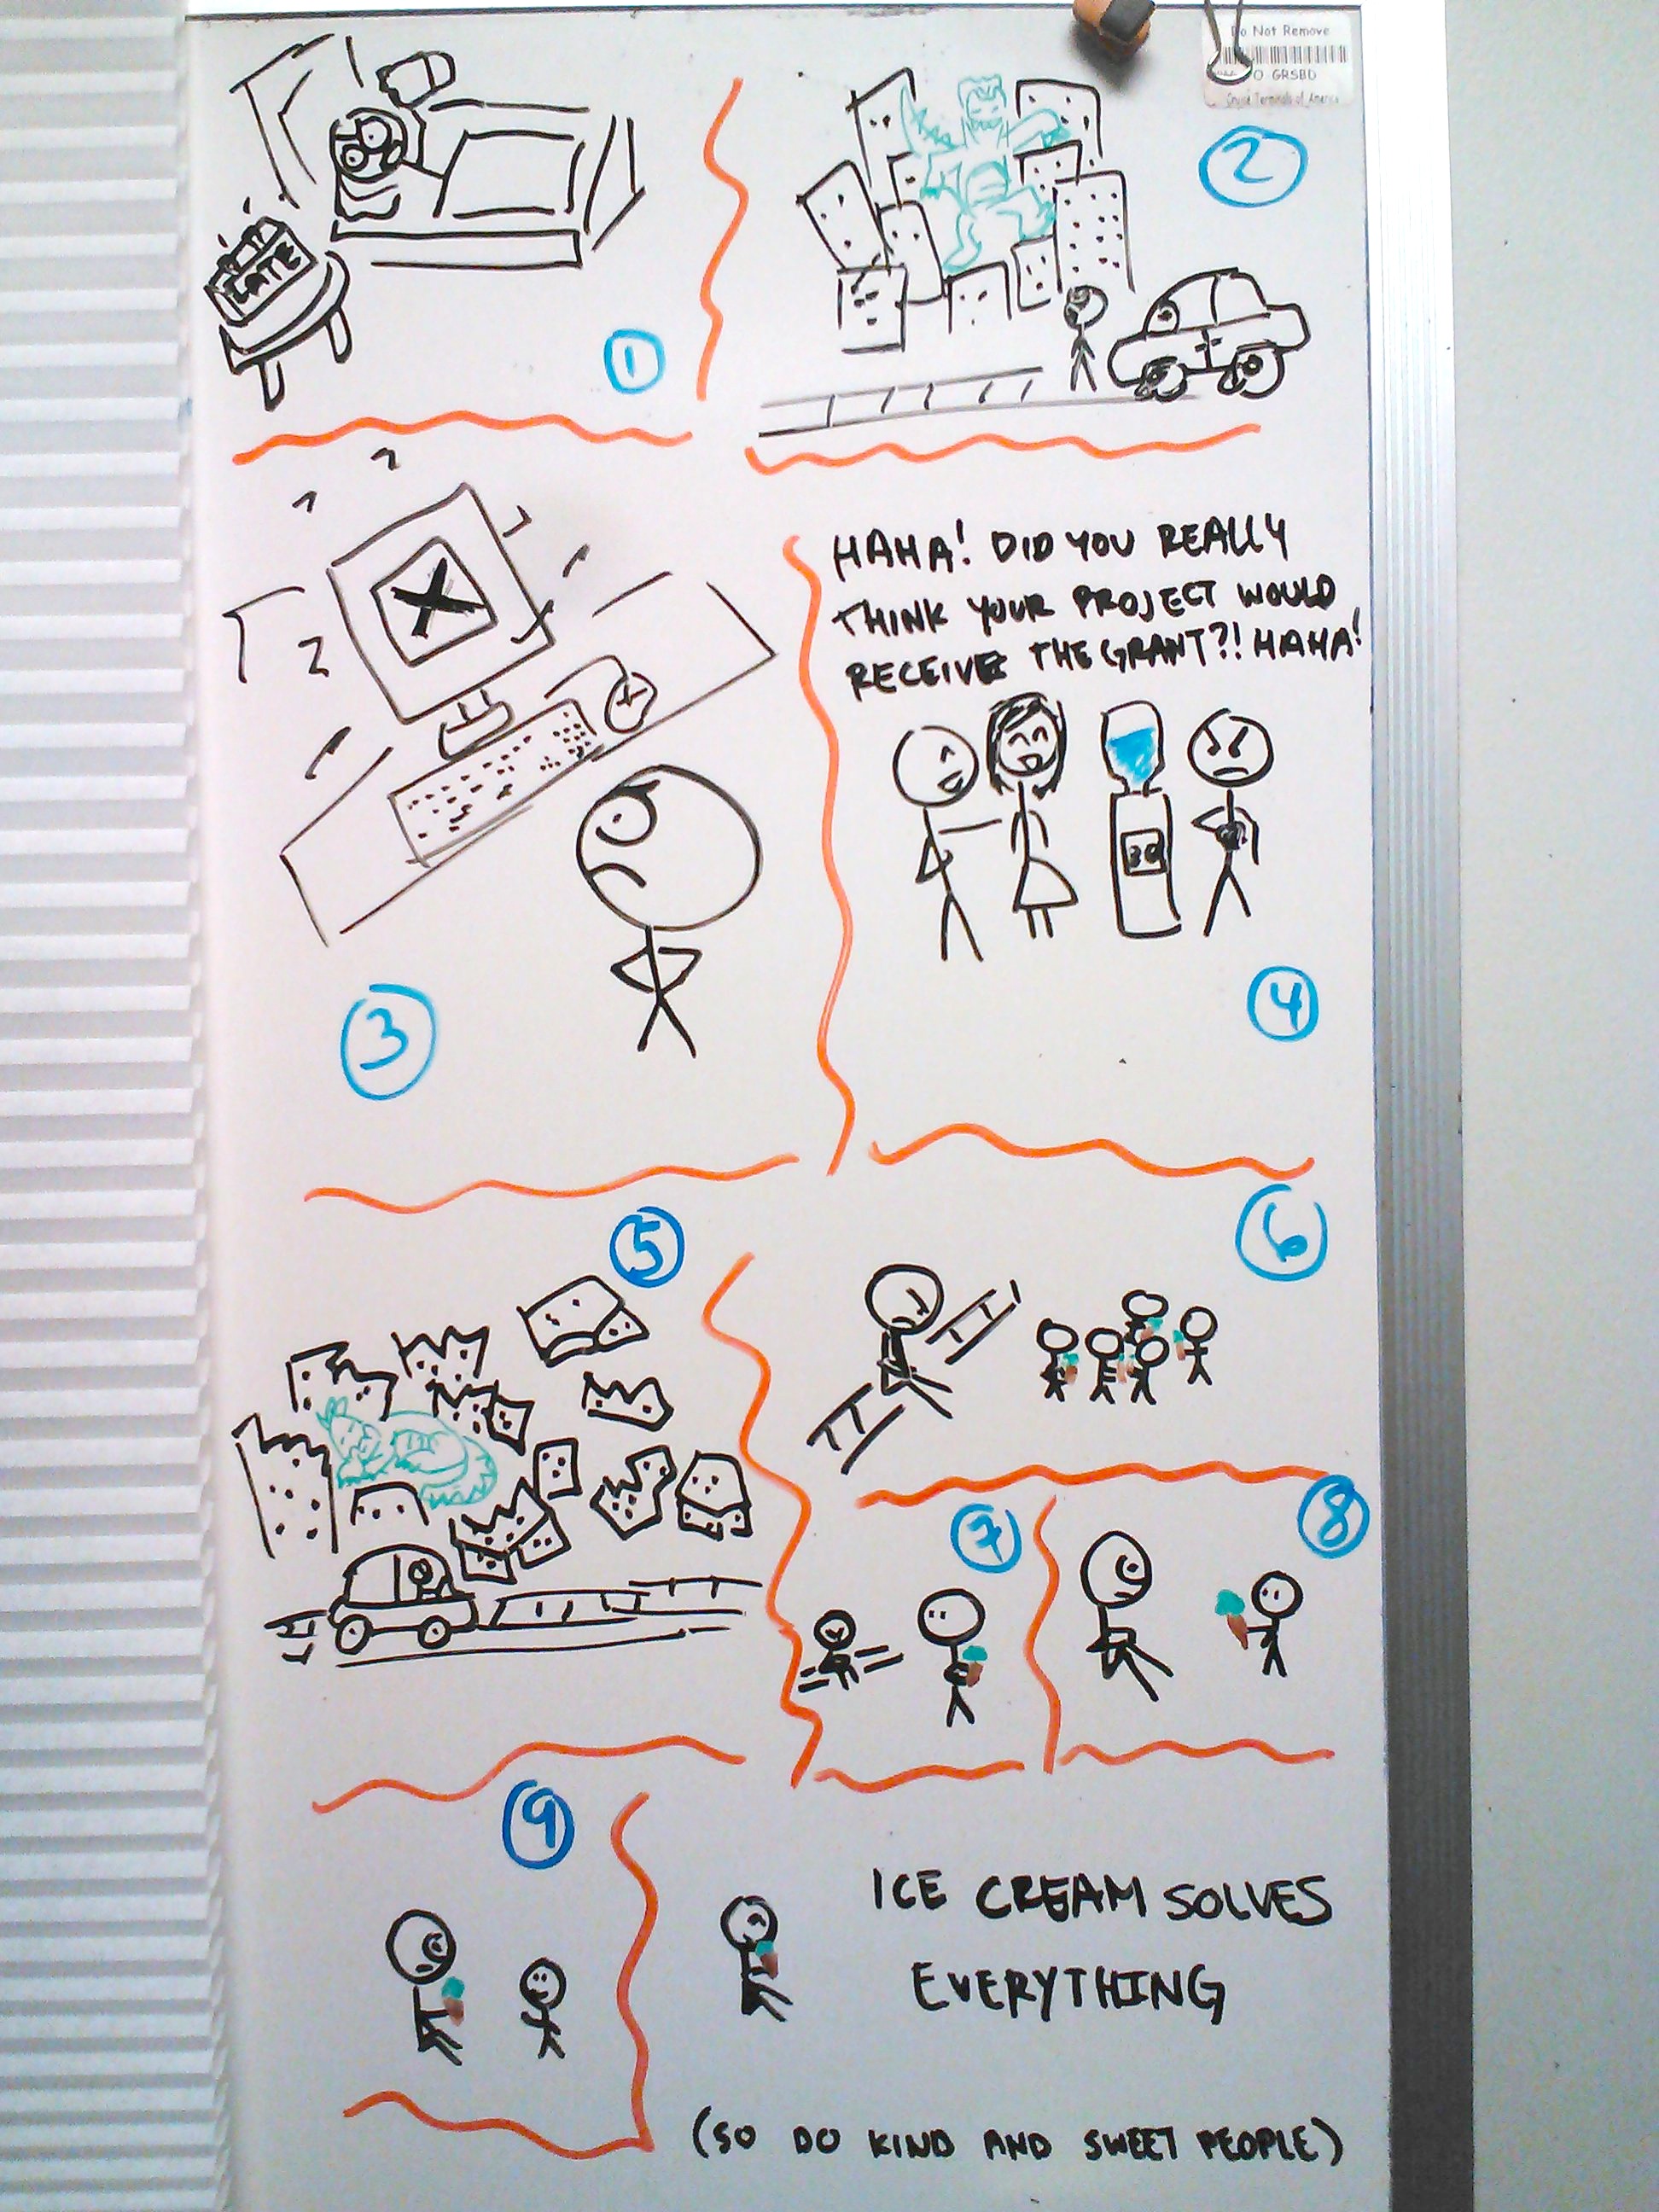 Do Not Remove
O GRSBD
Cruise Terminals of America
LATE
1
2
HAHA! DID YOU REALLY
THINK YOUR PROJECT WOULD
RECEIVE THE GRANT?! HAHA!
3
4
5
6
7
8
9
ICE CREAM SOLVES
EVERYTHING
(SO DO KIND AND SWEET PEOPLE)